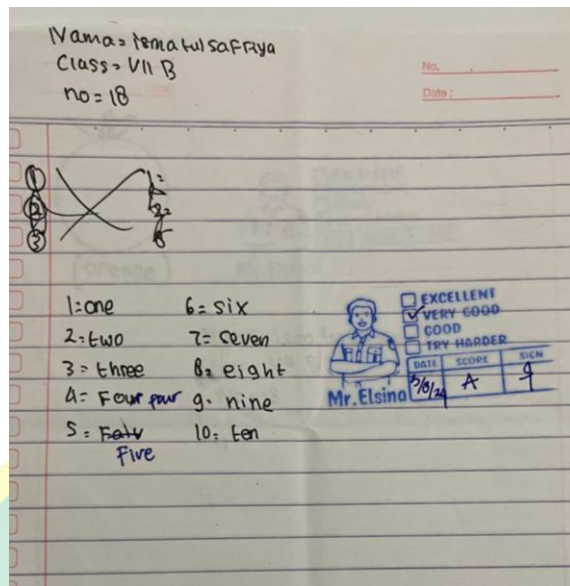 Nama = ismatul saffiya
Class = VII B
no = 18
No.
Date :
1
2
3
1 = one
2 = two
3 = three
4 = Four four
5 = 
Five
6 = six
7 = seven
8 = eight
9 = nine
10 = ten
EXCELLENT
VERY GOOD
GOOD
TRY HARDER
DATE SCORE SIGN
A
Mr. Elsina